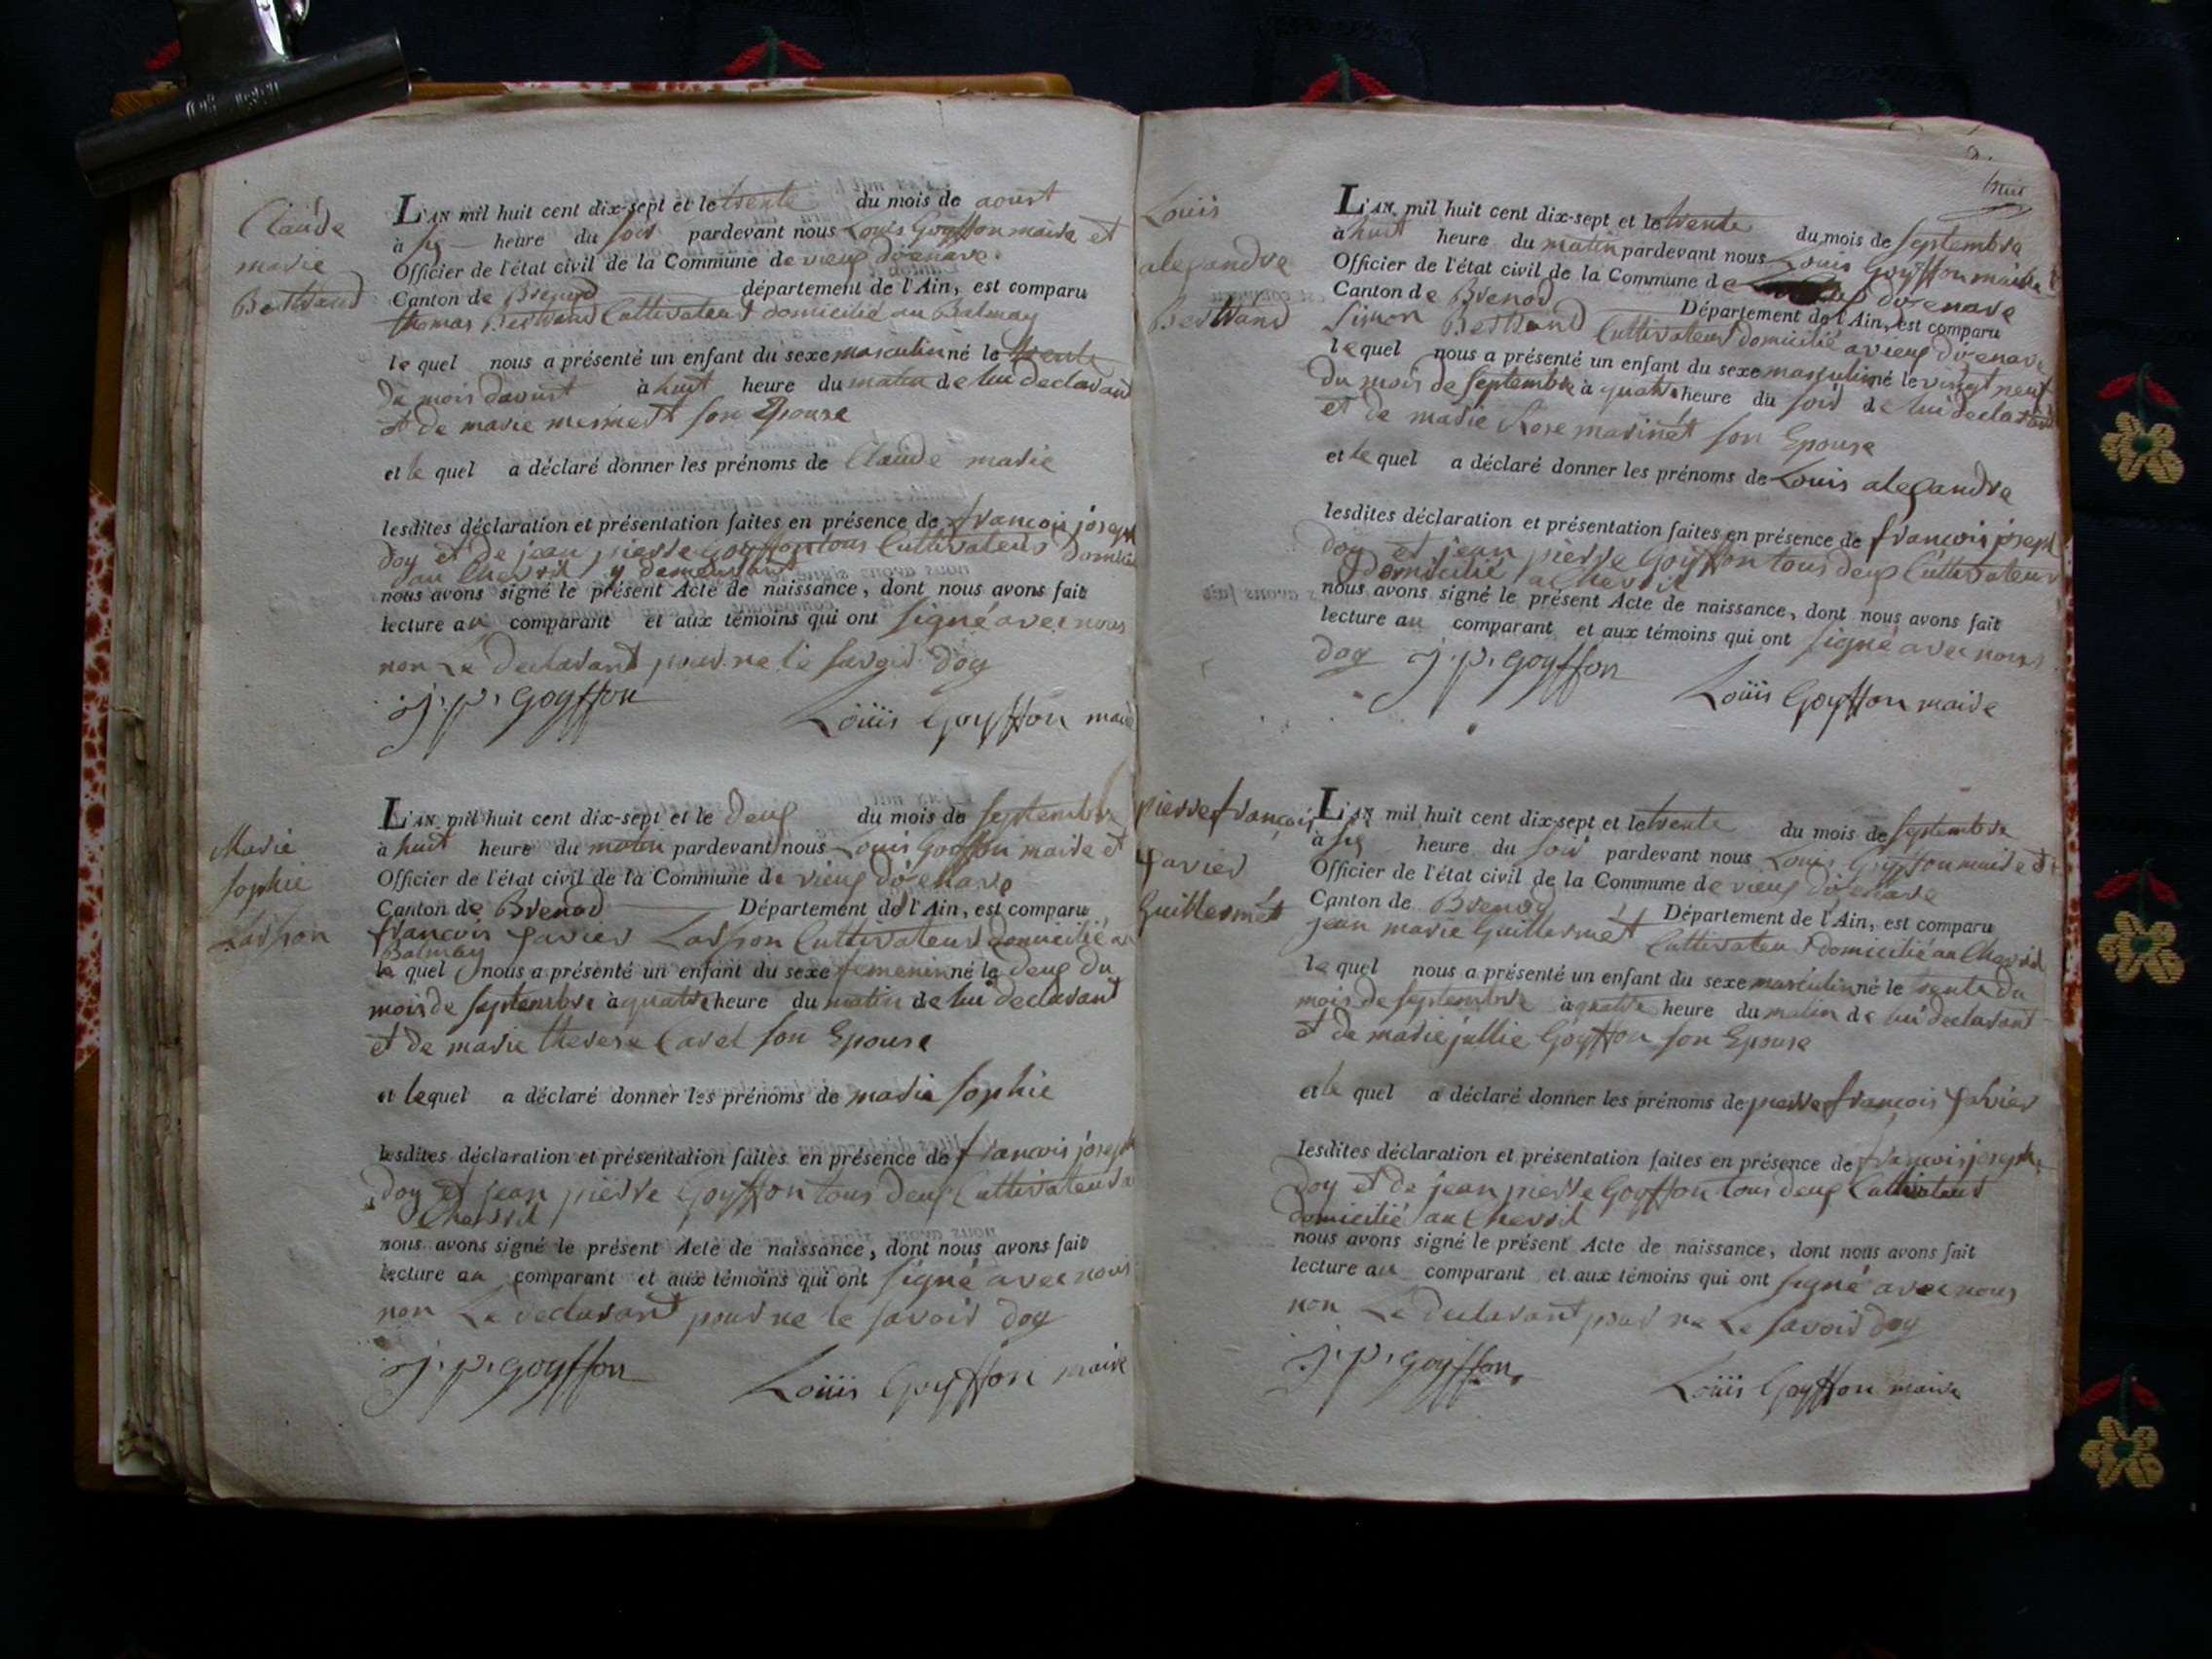 Claude
marie
Bertrand
L'an mil huit cent dix-sept et le trente du mois de aoust
à six heure du soir pardevant nous Louis Goyffon maire et
Officier de l'état civil de la Commune de vieux d'izenave
Canton de Brenod département de l'Ain, est comparu
thomas Bertrand Cultivateur domicilié au Balmay
le quel nous a présenté un enfant du sexe masculin né le trente
du mois d'aoust à huit heure du matin de lui declarant
et de marie mermet son Epouse
et le quel a déclaré donner les prénoms de Claude marie
lesdites déclaration et présentation faites en présence de françois joseph
doy et de jean pierre Goyffon tous Cultivateurs
au Chevril y demeurant
nous avons signé le présent Acte de naissance, dont nous avons fait
lecture au comparant et aux témoins qui ont signé avec nous
non Le declarant pour ne le savoir doy
j. p. goyffon
Loüis Goyffon maire
Marie
sophie
Larson
L'an mil huit cent dix-sept et le deux du mois de septembre
à huit heure du matin pardevant nous Louis Goyffon maire et
Officier de l'état civil de la Commune de vieux d'izenave
Canton de Brenod Département de l'Ain, est comparu
françois xavier Larson Cultivateur domicilié au
Balmay
le quel nous a présenté un enfant du sexe femenin né le deux du
mois de septembre à quatre heure du matin de lui declarant
et de marie therese Cavel son Epouse
et lequel a déclaré donner les prénoms de marie sophie
lesdites déclaration et présentation faites en présence de françois joseph
doy et jean pierre Goyffon tous deux Cultivateurs a
Chevril
nous avons signé le présent Acte de naissance, dont nous avons fait
lecture au comparant et aux témoins qui ont signé avec nous
non Le declarant pour ne le savoir doy
j. p. goyffon
Loüis Goyffon maire
huit
Louis
alexandre
Bertrand
L'an mil huit cent dix-sept et le trente du mois de septembre
à huit heure du matin pardevant nous Louis Goyffon maire et
Officier de l'état civil de la Commune de d'izenave
Canton de Brenod Département de l'Ain, est comparu
simon Bertrand Cultivateur domicilié a vieux d'izenave
le quel nous a présenté un enfant du sexe masculin né le vingt neuf
du mois de septembre à quatre heure du soir de lui declarant
et de marie Rose marinet son Epouse
et le quel a déclaré donner les prénoms de Louis alexandre
lesdites déclaration et présentation faites en présence de françois joseph
doy et jean pierre Goyffon tous deux Cultivateur
domicilié a Chevril
nous avons signé le présent Acte de naissance, dont nous avons fait
lecture au comparant et aux témoins qui ont signé avec nous
doy j. p. goyffon
Loüis Goyffon maire
pierre françois
xavier
Guillermet
L'an mil huit cent dix-sept et le trente du mois de septembre
à six heure du soir pardevant nous Louis Goyffon maire et
Officier de l'état civil de la Commune de vieux d'izenave
Canton de Brenod Département de l'Ain, est comparu
jean marie Guillermet Cultivateur domicilié au Chevril
le quel nous a présenté un enfant du sexe masculin né le trente du
mois de septembre à quatre heure du matin de lui declarant
et de marie jullie Goyffon son Epouse
et le quel a déclaré donner les prénoms de pierre françois xavier
lesdites déclaration et présentation faites en présence de françois joseph
doy et de jean pierre Goyffon tous deux Cultivateur
domicilié au Chevril
nous avons signé le présent Acte de naissance, dont nous avons fait
lecture au comparant et aux témoins qui ont signé avec nous
non Le declarant pour ne Le savoir doy
j. p. goyffon
Loüis Goyffon maire